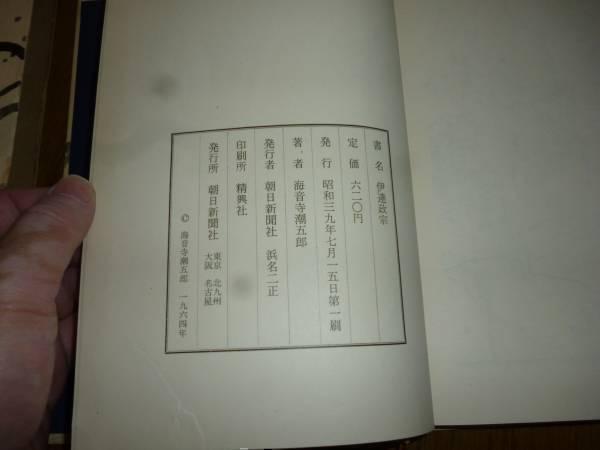 書名 伊達政宗
定価 六二〇円
発行 昭和三九年七月一五日第一刷
著者 海音寺潮五郎
発行者 朝日新聞社 浜名二正
印刷所 精興社
発行所 朝日新聞社 東京 北九州
大阪 名古屋
© 海音寺潮五郎 一九六四年